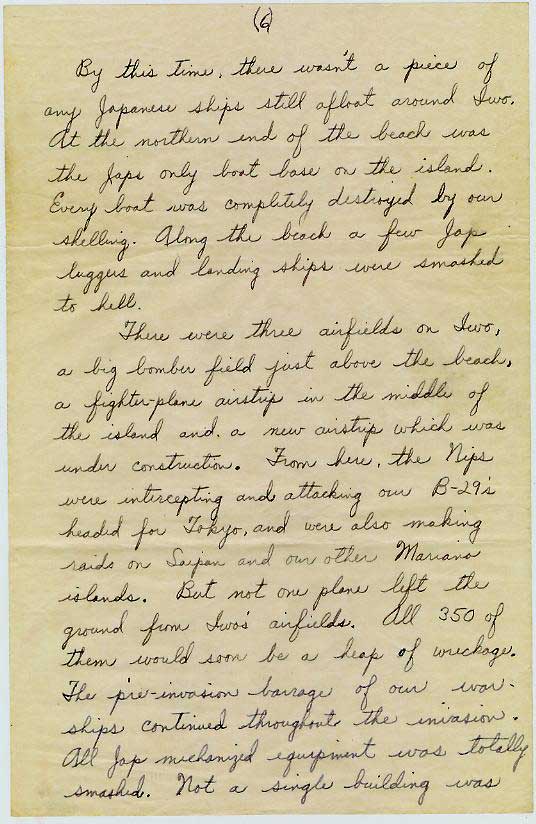 (6)
By this time, there wasn't a piece of
any Japanese ships still afloat around Iwo.
At the northern end of the beach was
the Japs only boat base on the island.
Every boat was completely destroyed by our
shelling. Along the beach a few Jap
luggers and landing ships were smashed
to hell.
There were three airfields on Iwo,
a big bomber field just above the beach,
a fighter-plane airstrip in the middle of
the island and a new airstrip which was
under construction. From here, the Nips
were intercepting and attacking our B-29's
headed for Tokyo, and were also making
raids on Saipan and our other Mariana
islands. But not one plane left the
ground from Iwo's airfields. All 350 of
them would soon be a heap of wreckage.
The pre-invasion barrage of our war-
ships continued throughout the invasion.
All Jap mechanized equipment was totally
smashed. Not a single building was